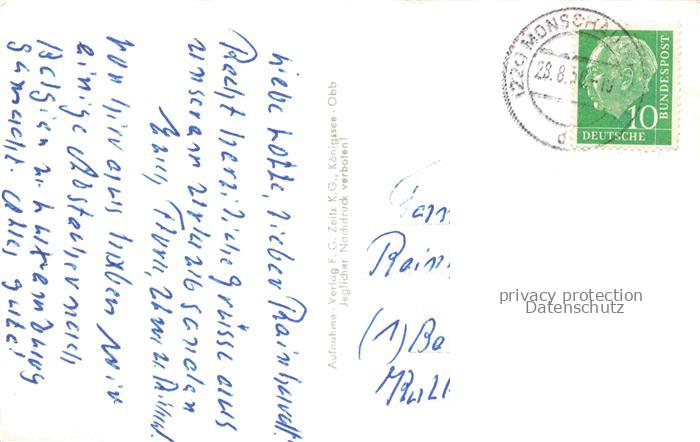 Liebe Lotte, lieber Reinhardt!
Recht herzliche Grüsse aus
unserem Urlaub senden
Euch
von hier aus haben wir
einige Abstecher nach
Belgien u.
gemacht. Alles gute!
Aufnahme - Verlag F. G. Zeitz K.G., Königssee - Obb
Jeglicher Nachdruck verboten!
(22c) MONSCHAU
28.8.
d
10
DEUTSCHE
BUNDESPOST
Fam
(1) Ba
privacy protection
Datenschutz